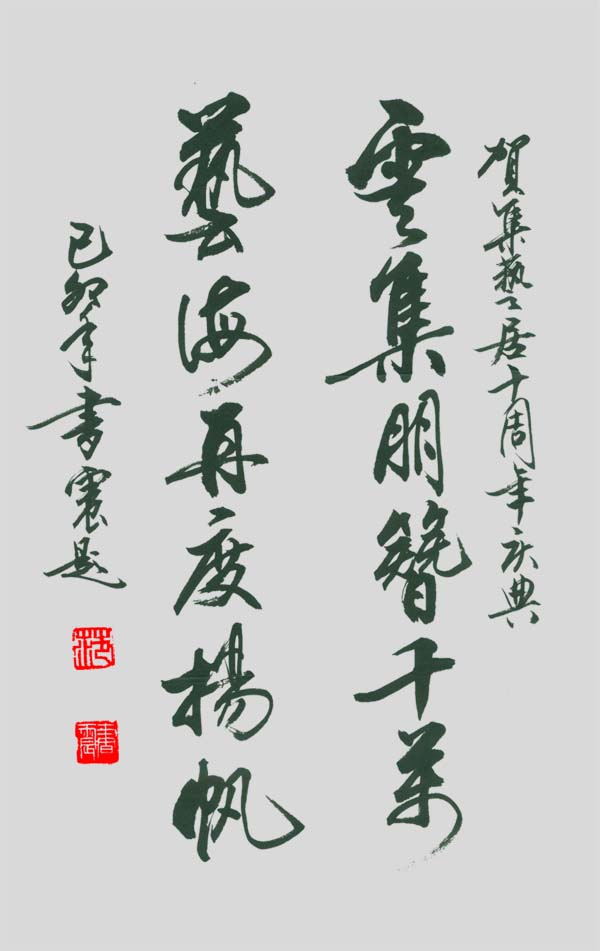 賀集藝居十周年庆典
雲集朋簪千萬
藝海再度揚帆
己卯年書震題
書震